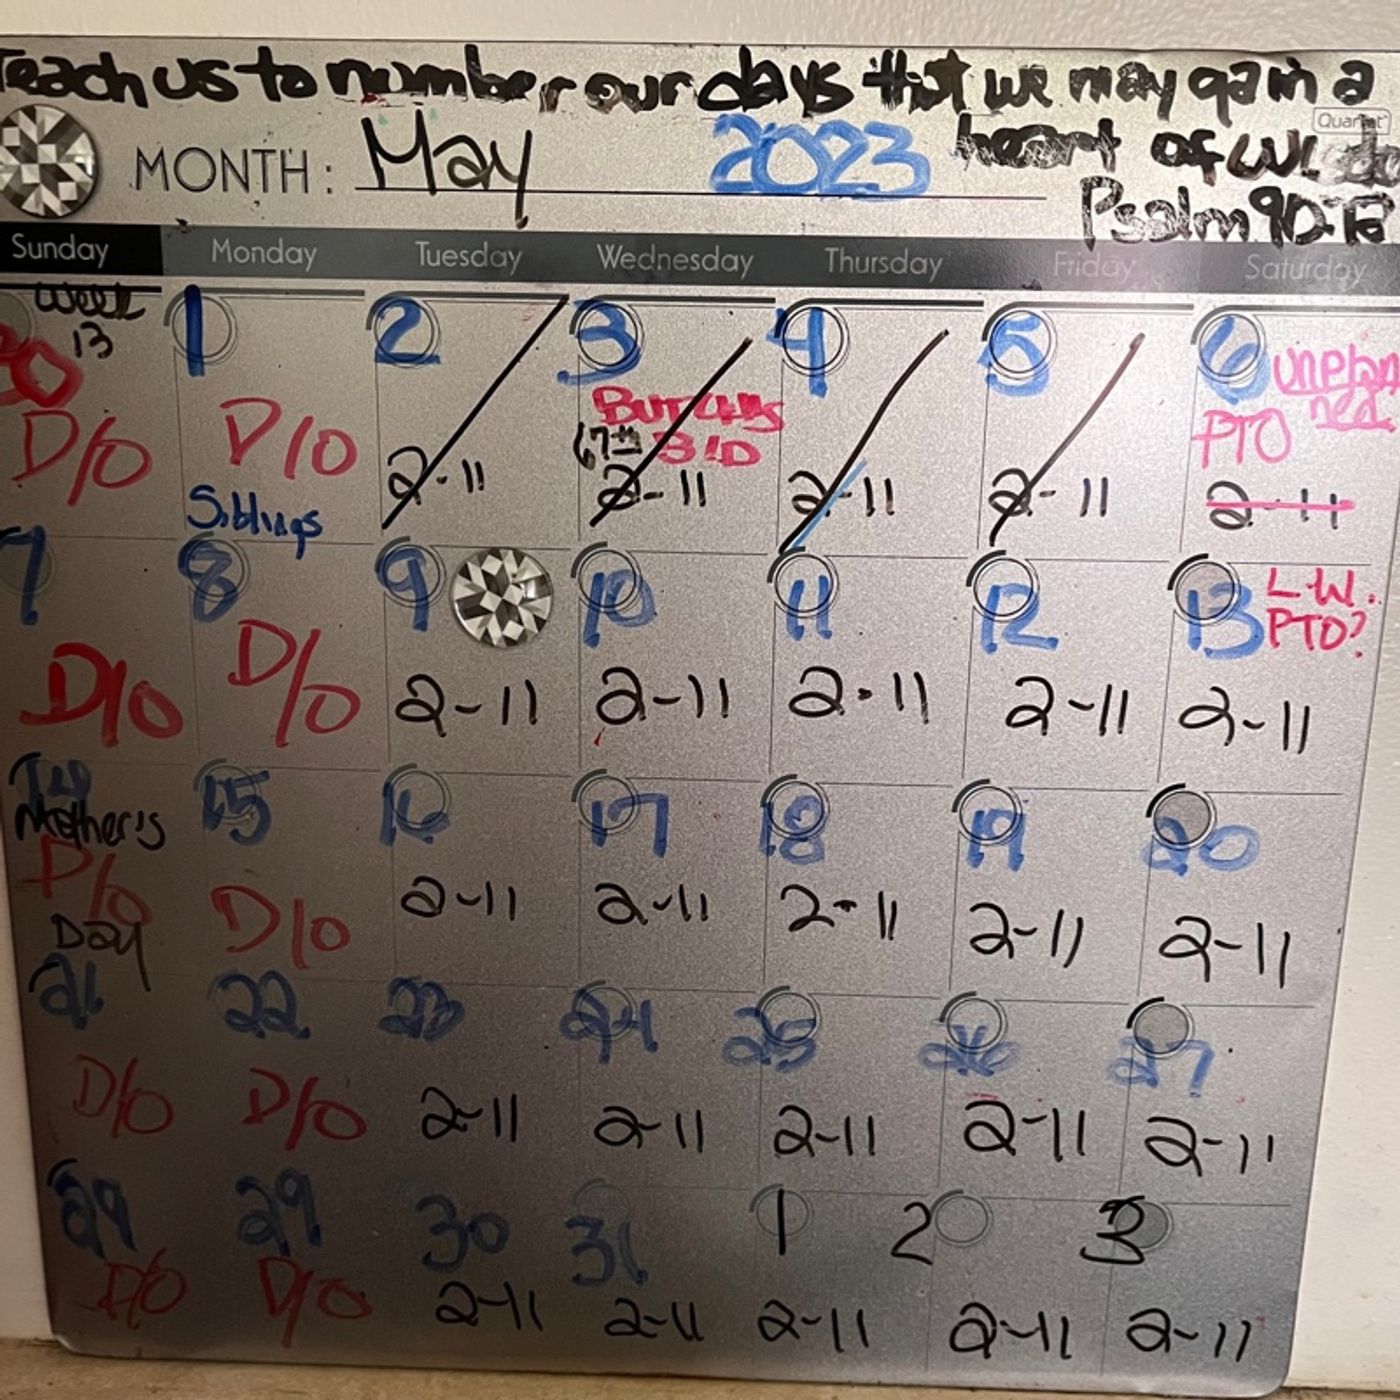 Teach us to number our days that we may gain a
Quartet
heart of
MONTH: May 2023
Psalm 90:12
Sunday Monday Tuesday Wednesday Thursday Friday Saturday
Week
13
30 1 2 3 4 5 6 unplan
ned
D/O D/O BUTCHYS PTO
67th B/D
2-11 2-11 2-11 2-11 2-11
Siblings
7 8 9 10 11 12 13 L.W.
PTO?
D/O D/O 2-11 2-11 2-11 2-11 2-11
14 15 16 17 18 19 20
Mother's
D/O D/O 2-11 2-11 2-11 2-11 2-11
Day
21 22 23 24 25 26 27
D/O D/O 2-11 2-11 2-11 2-11 2-11
29 29 30 31 1 2 3
D/O D/O 2-11 2-11 2-11 2-11 2-11